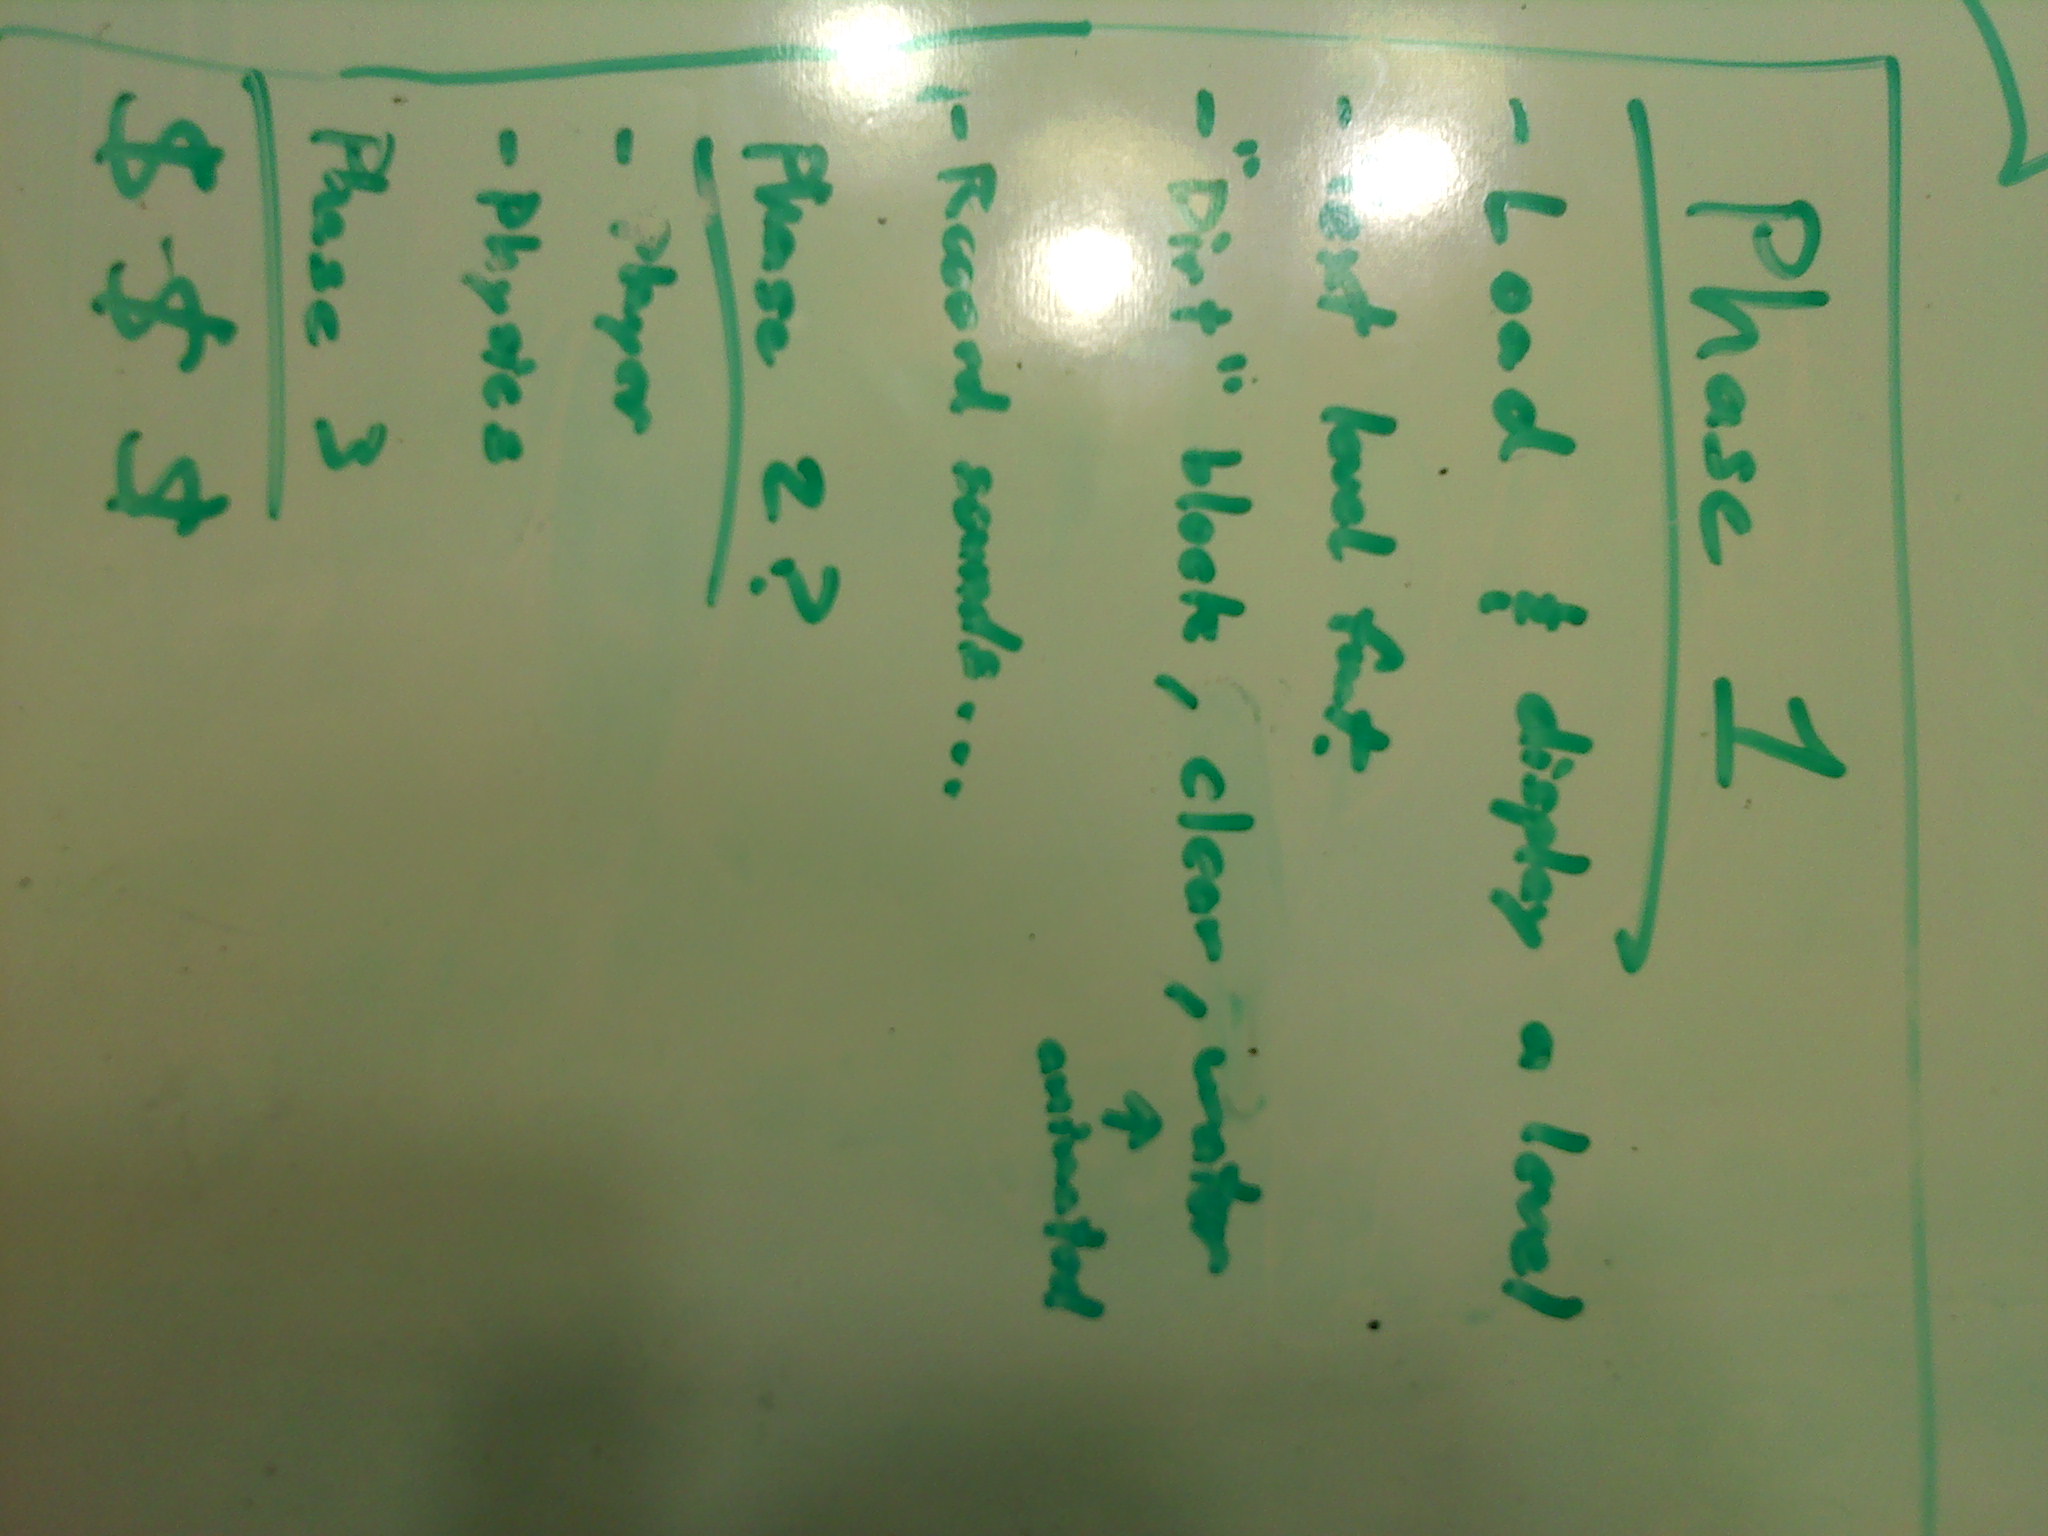 Phase 1
- Load & display a level
- test level first.
- "Dirt" block, clear, water
↑
animated
- Record sounds....
Phase 2?
- Player
- Physics
Phase 3
$ $ $